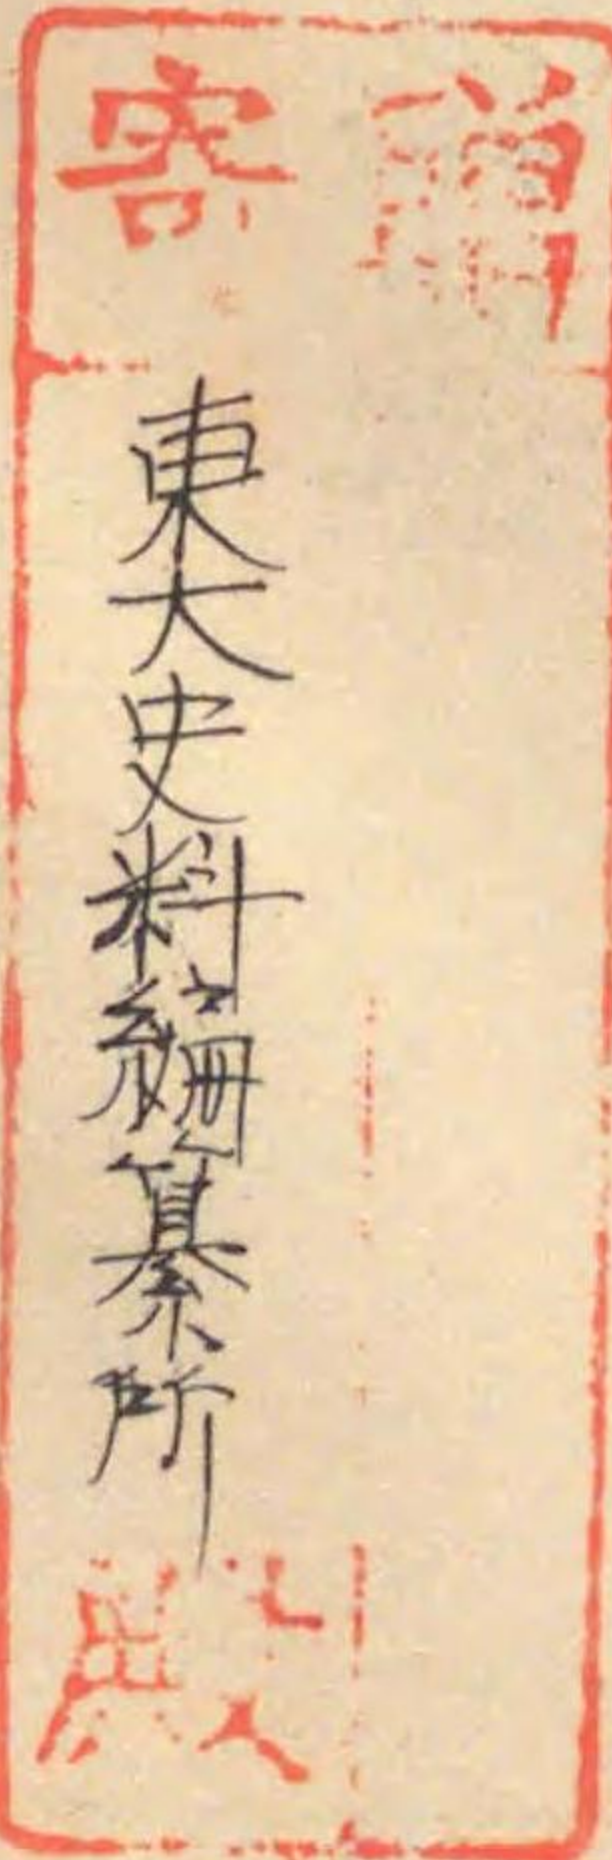 寄贈
東大史料編纂所
殿